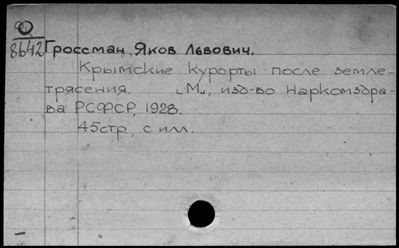 8642
Гроссман, Яков Львович.
Крымские курорты после земле-
трясения. „М„, изд-во Наркомздра-
ва РСФСР, 1928.
45стр, с илл.